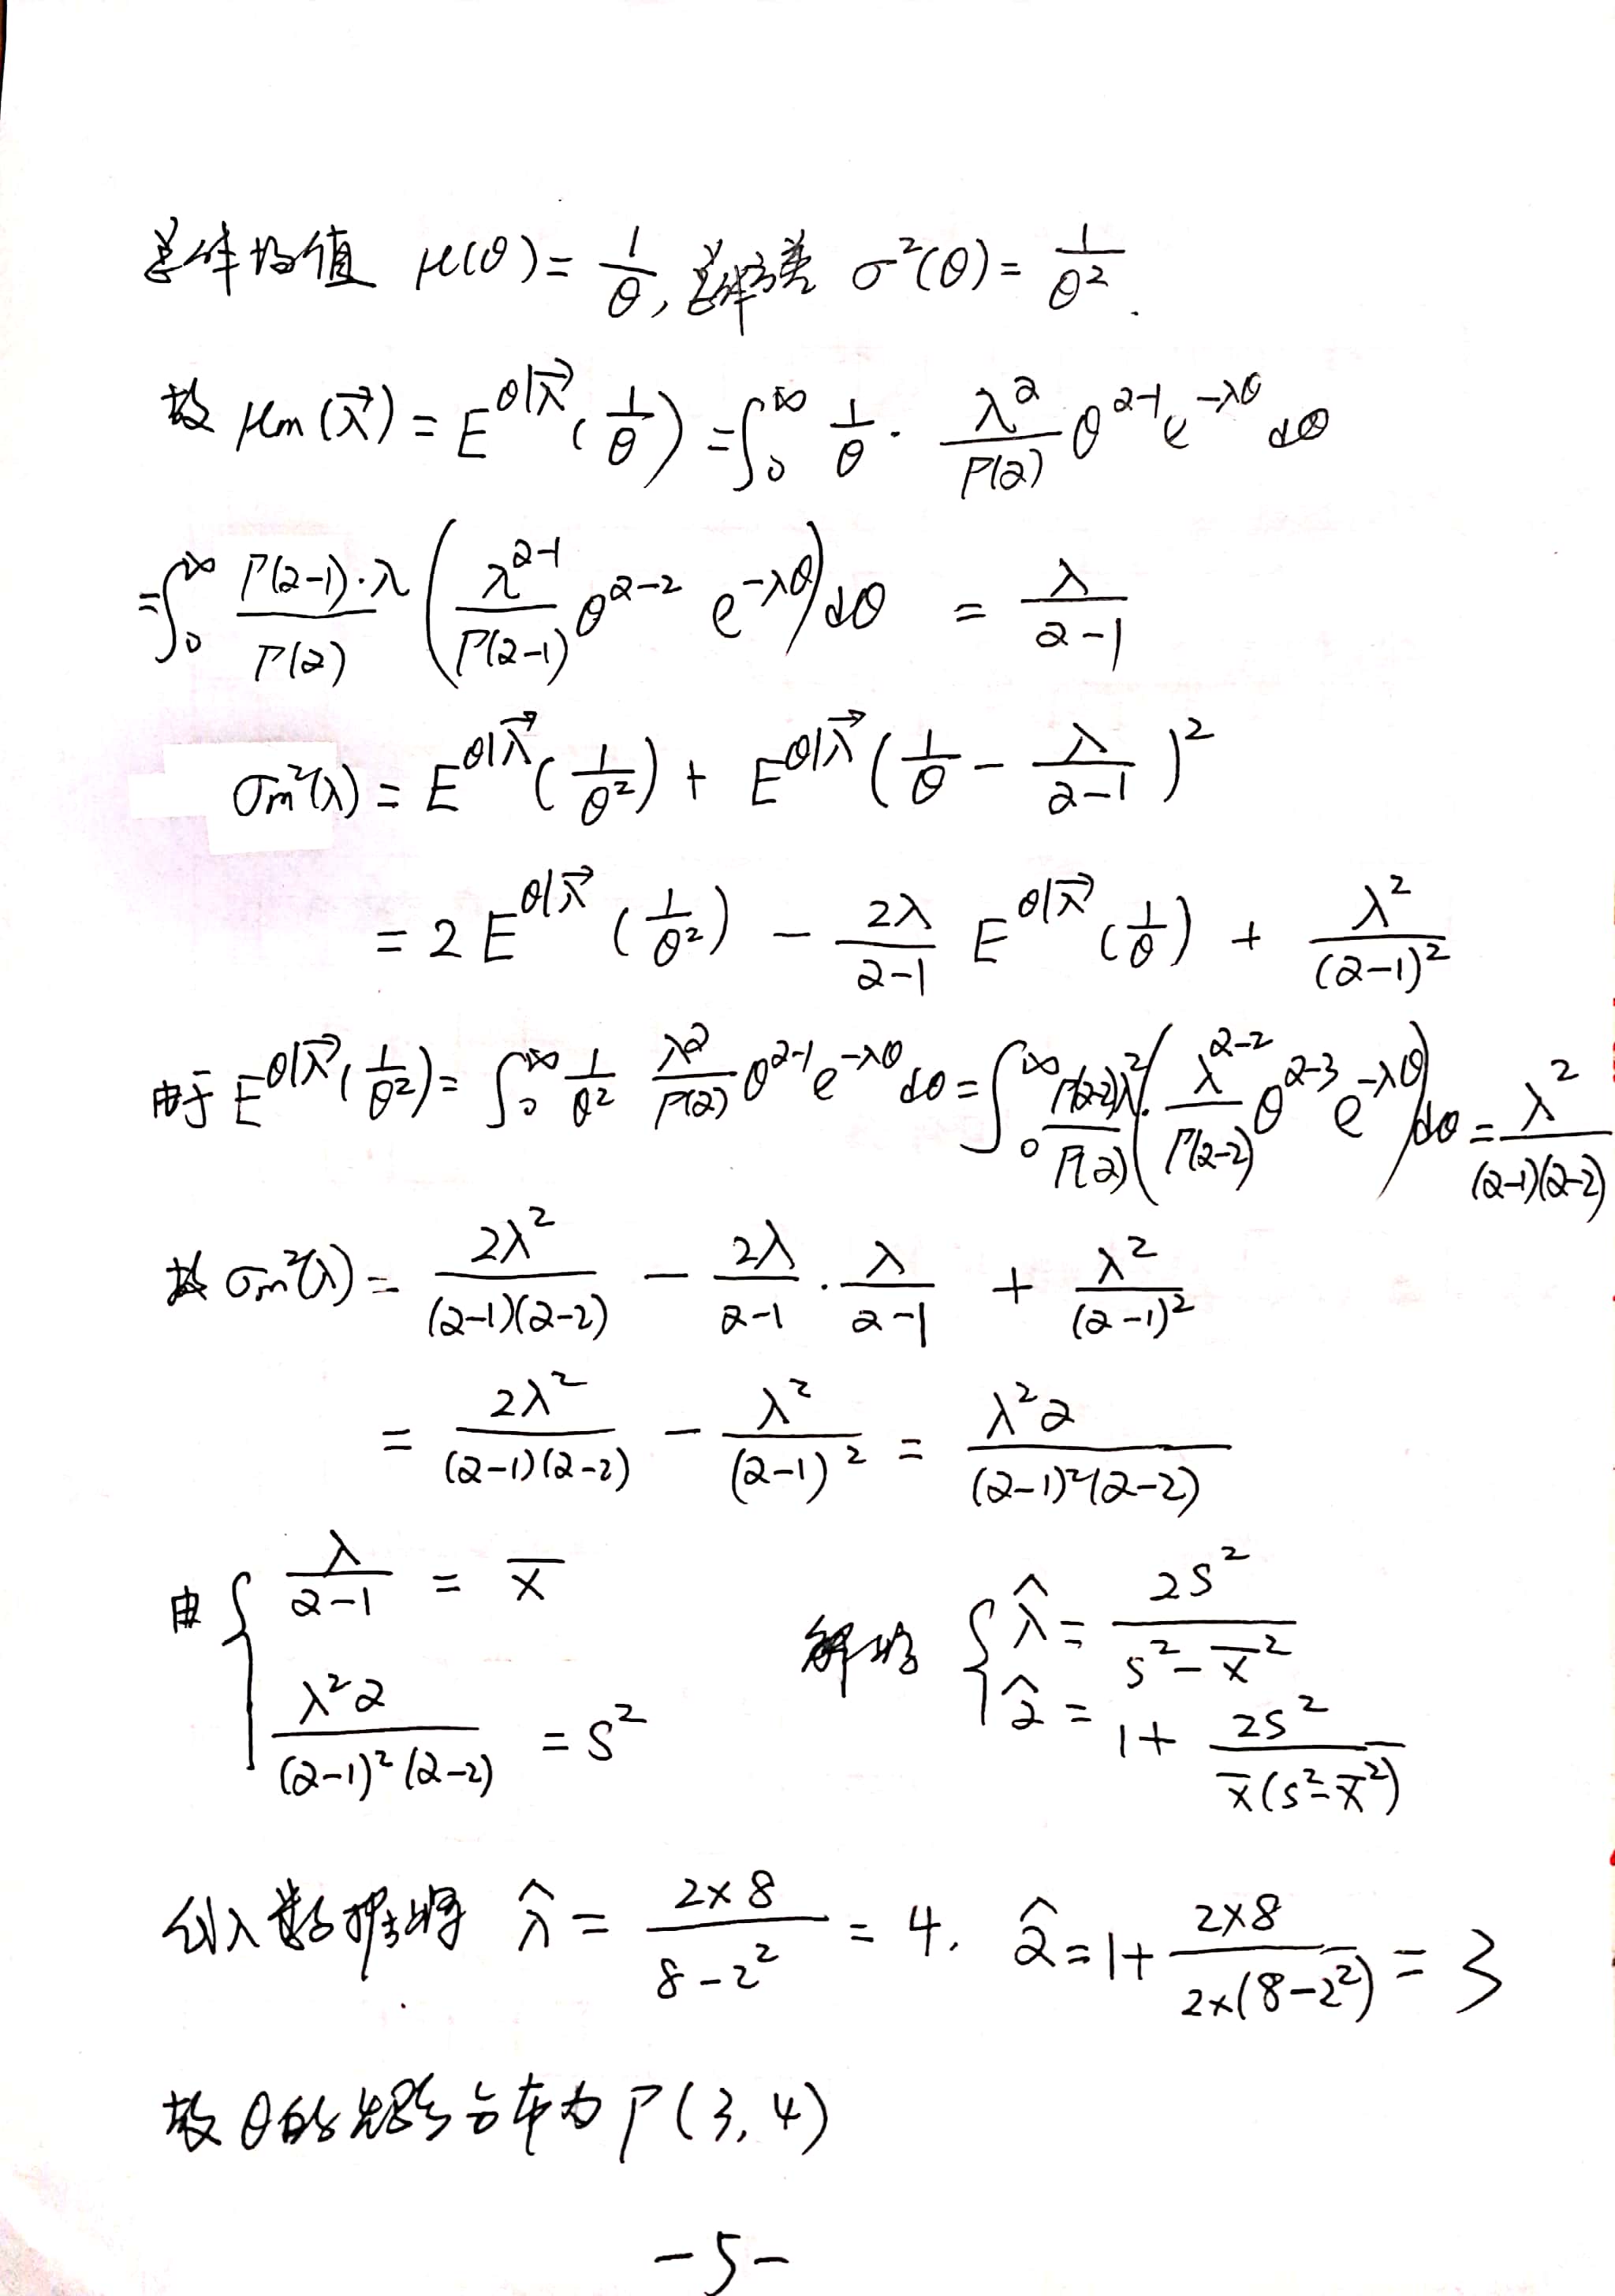 总体均值 μ(θ) = 1/θ, 总体方差 σ²(θ) = 1/θ².
故 μm(λ⃗) = E^{θ|λ⃗}(1/θ) = ∫₀^∞ 1/θ · λ^α/Γ(α) θ^{α-1} e^{-λθ} dθ
= ∫₀^∞ Γ(α-1)·λ/Γ(α) (λ^{α-1}/Γ(α-1) θ^{α-2} e^{-λθ}) dθ = λ/(α-1)
σm²(λ) = E^{θ|λ⃗}(1/θ²) + E^{θ|λ⃗}(1/θ - λ/(α-1))²
= 2E^{θ|λ⃗}(1/θ²) - 2λ/(α-1) E^{θ|λ⃗}(1/θ) + λ²/(α-1)²
由于 E^{θ|λ⃗}(1/θ²) = ∫₀^∞ 1/θ² λ^α/Γ(α) θ^{α-1} e^{-λθ} dθ = ∫₀^∞ Γ(α-2)λ²/Γ(α) · (λ^{α-2}/Γ(α-2) θ^{α-3} e^{-λθ}) dθ = λ²/(α-1)(α-2)
故 σm²(λ) = 2λ²/(α-1)(α-2) - 2λ/(α-1) · λ/(α-1) + λ²/(α-1)²
= 2λ²/(α-1)(α-2) - λ²/(α-1)² = λ²α/(α-1)²(α-2)
由 { λ/(α-1) = x̄
λ²α/(α-1)²(α-2) = S²
解得 { λ̂ = 2S²/(S²-x̄²)
α̂ = 1 + 2S²/x̄(S²-x̄²)
代入数据得 λ̂ = 2×8/(8-2²) = 4, α̂ = 1 + 2×8/2×(8-2²) = 3
故 θ的先验分布为 Γ(3, 4)
-5-